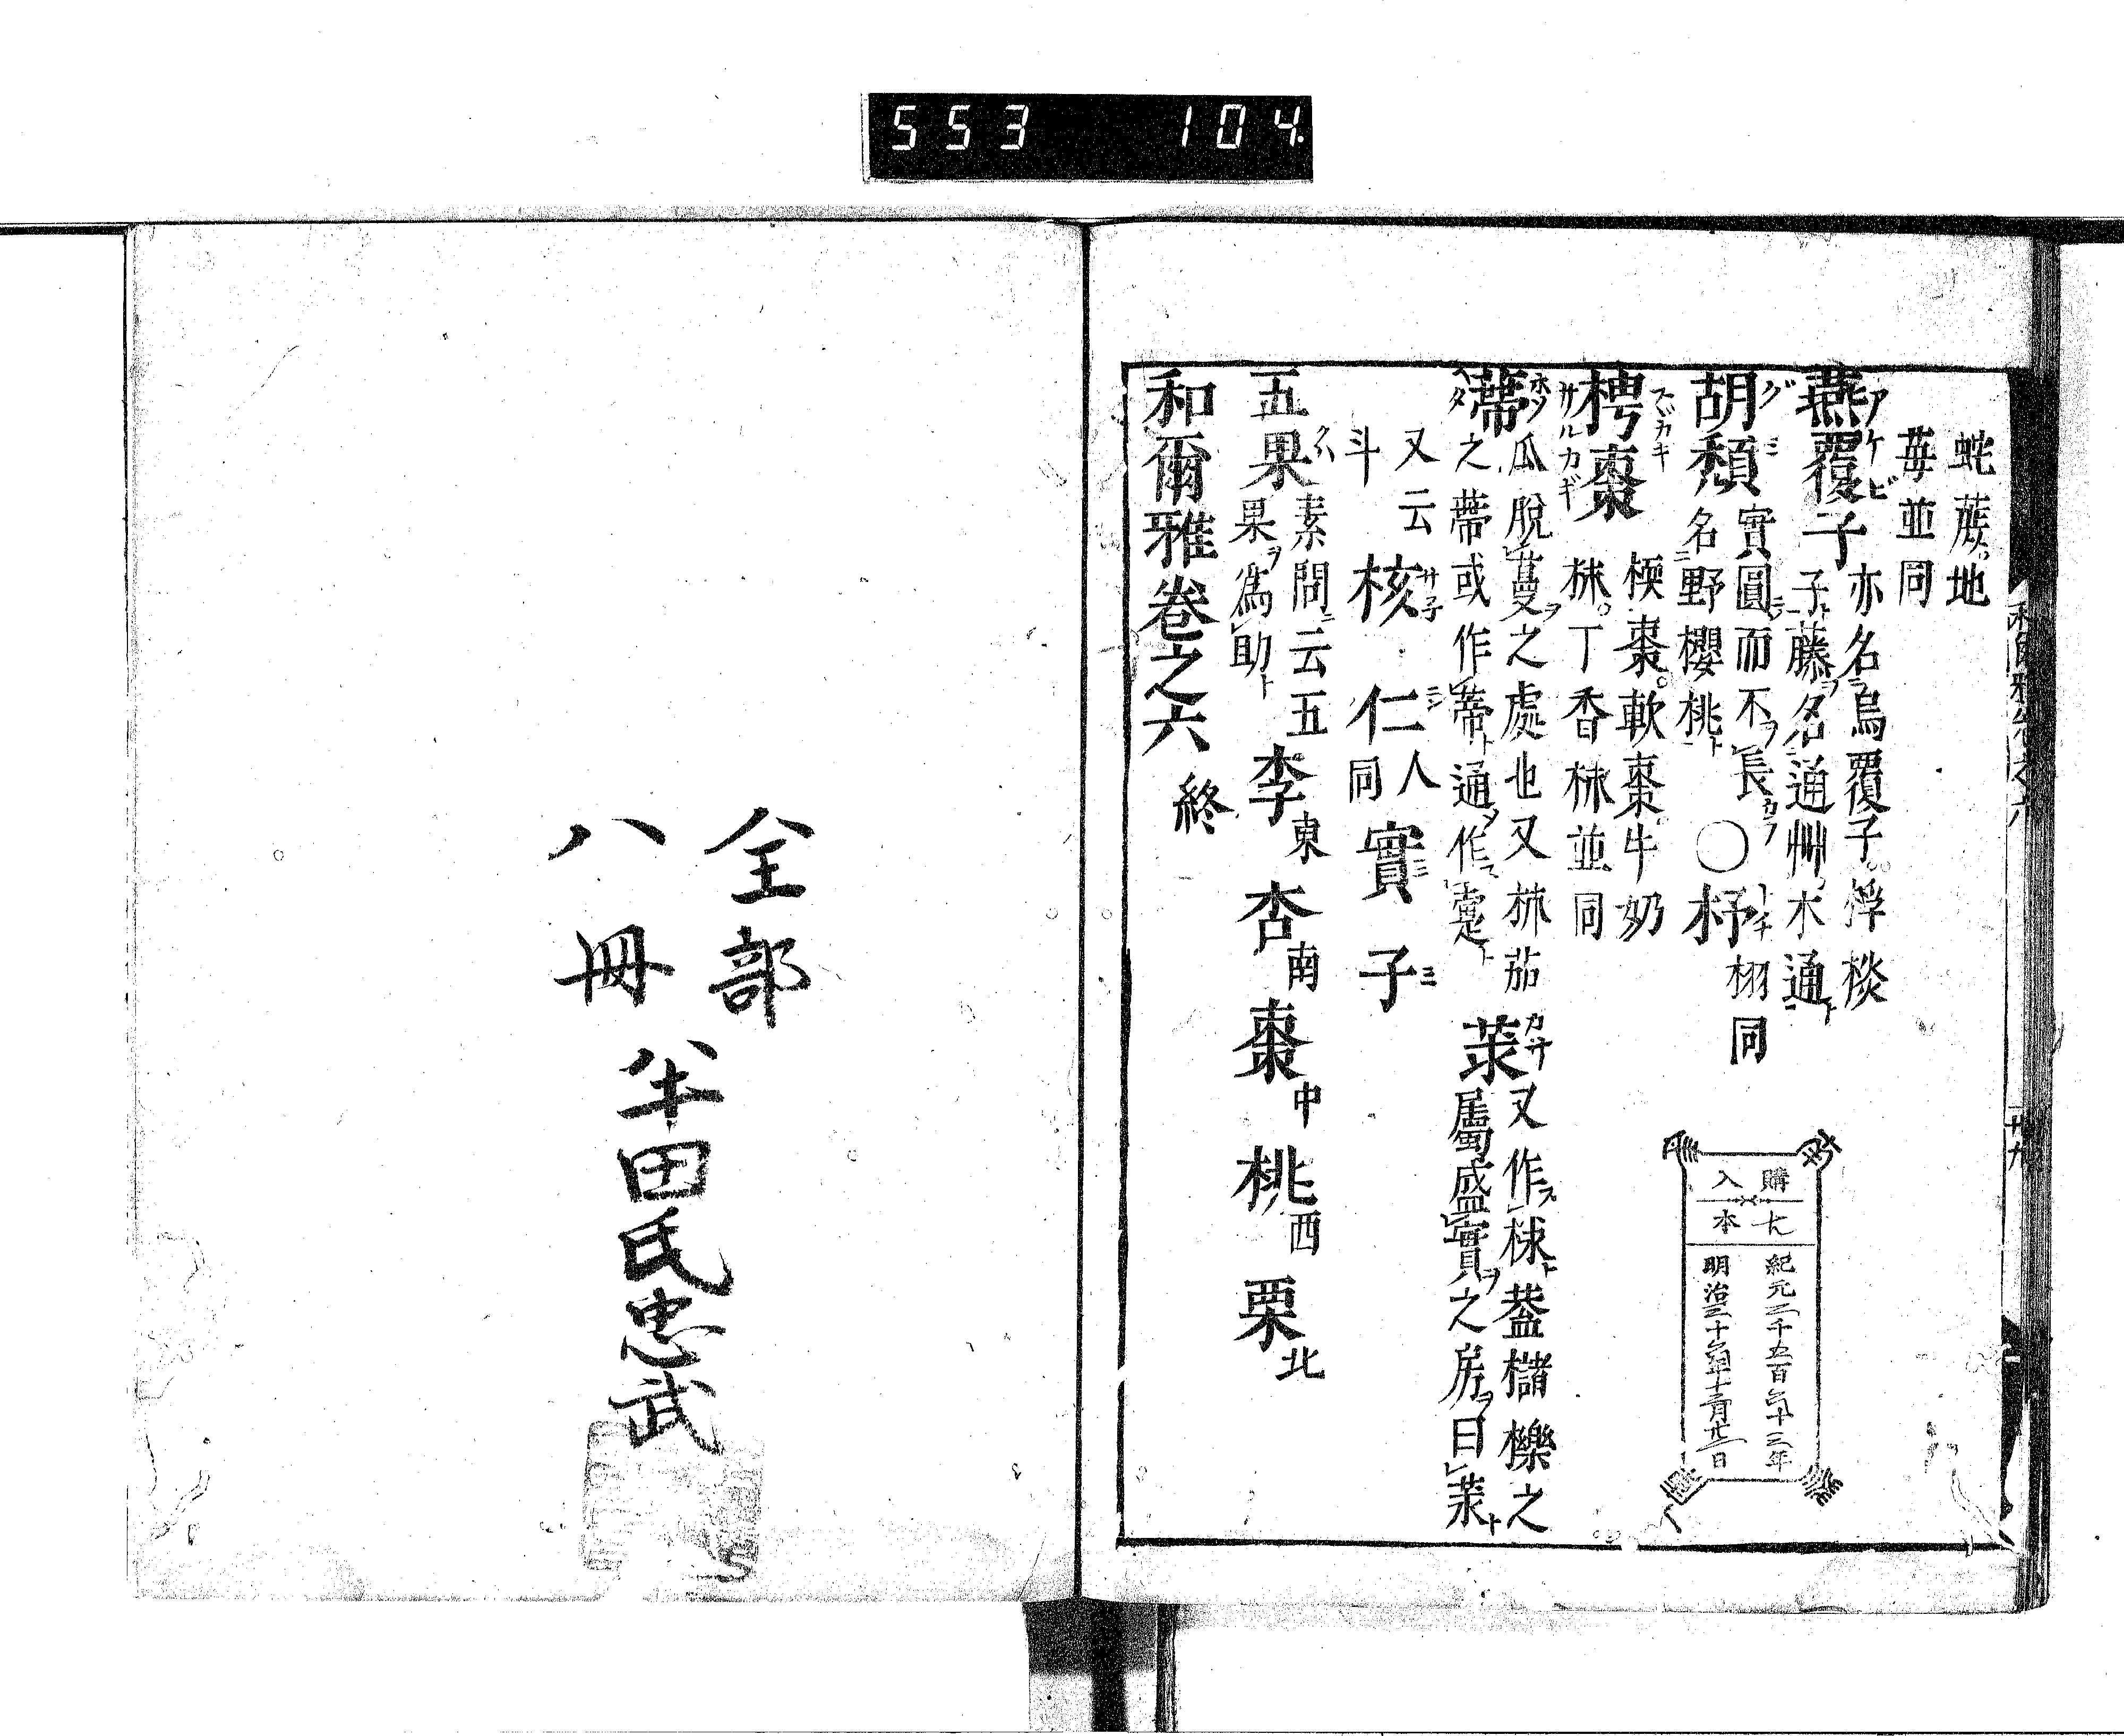 553 104
蛇蔗。地
苺並同
燕覆子 アケビ
亦名烏覆子。
子藤名通艸木通
胡頽 グミ
實圓而不長
名野櫻桃
〇杼 トチ
栩同
梬棗 サルガキ
㮕棗。軟棗。牛奶
梾。丁香梾並同
蔕 ホゾ ヘタ
瓜脫蔓之處也又茄
之蔕或作蒂通作疐
莍 又作梂蓋櫧櫟之
屬盛實之房曰莍
又云
斗
核 サ子
仁 人同
實 ミ
子 ミ
五果
素問云五
果爲助
李東 杏南 棗中 桃西 栗北
和爾雅卷之六 終
廿九
購入
本
紀元二千五百
明治三十
全部
八冊
半田氏忠武